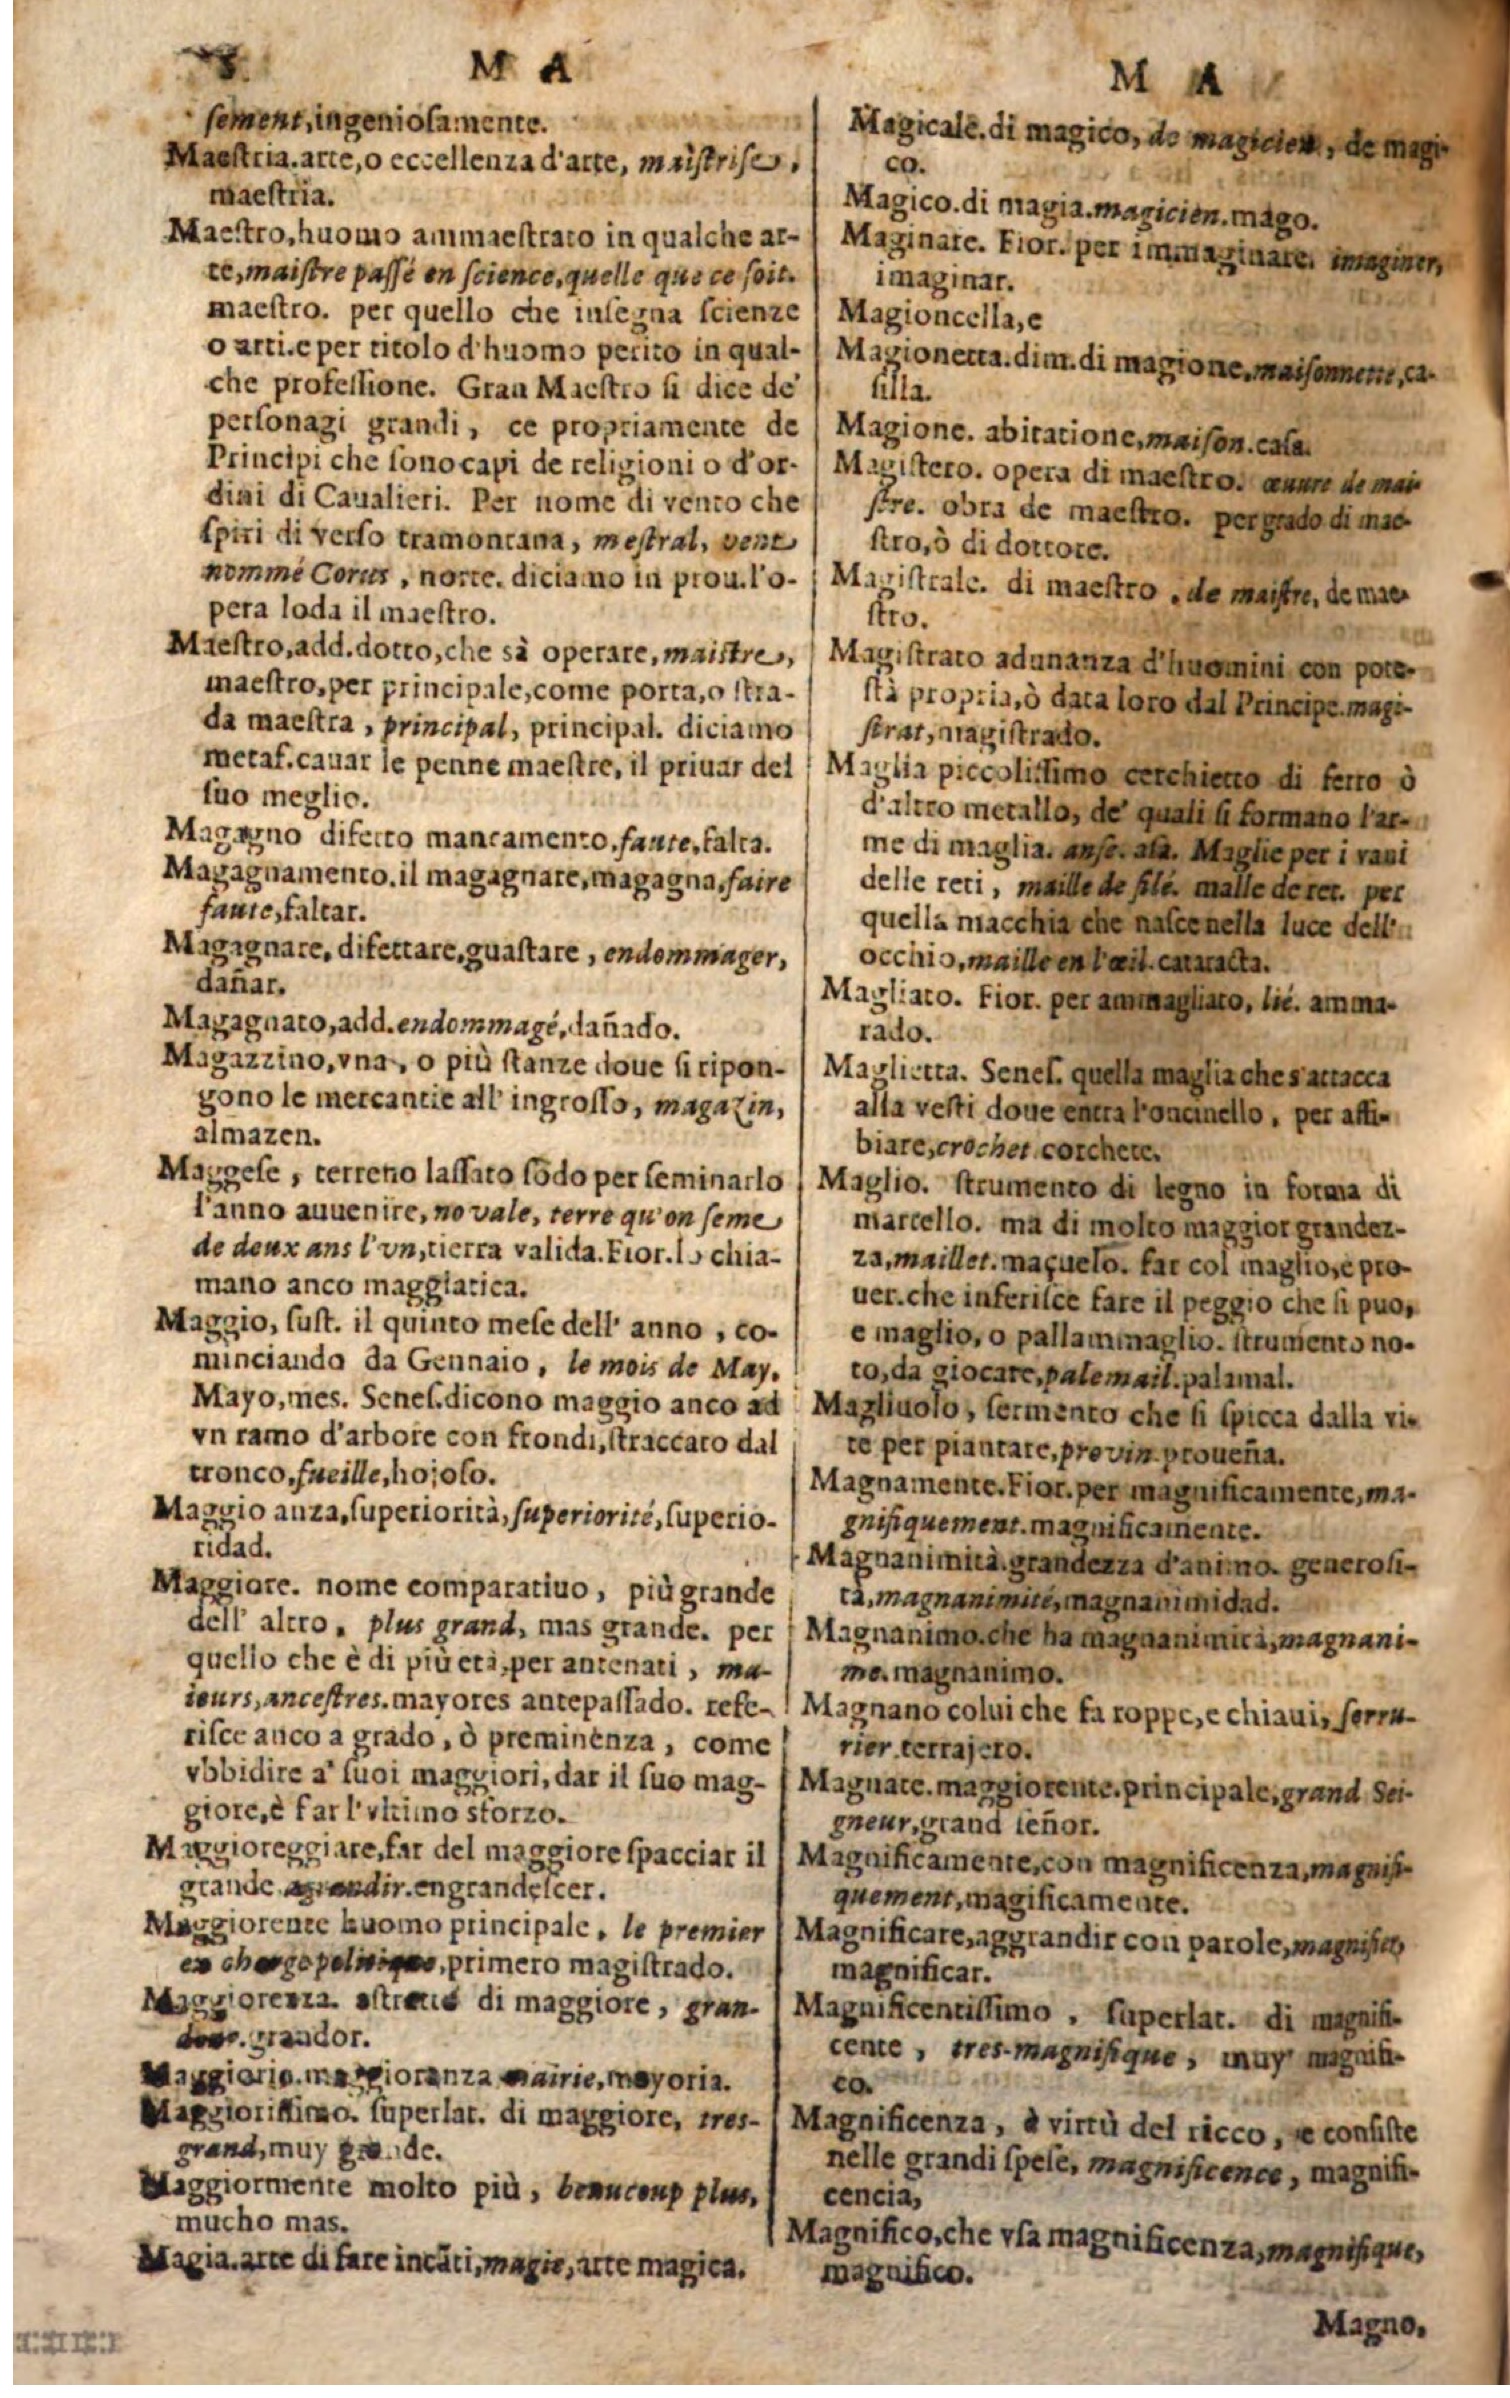 M A
ſement, ingenioſamente.
Maeſtria. arte, o eccellenza d'arte, maiſtriſe,
maeſtria.
Maeſtro, huomo ammaeſtrato in qualche ar-
te, maiſtre paſſé en ſcience, quelle que ce ſoit.
maeſtro. per quello che inſegna ſcienze
o arti. e per titolo d'huomo perito in qual-
che profeſſione. Gran Maeſtro ſi dice de'
perſonagi grandi, ce propriamente de
Principi che ſono capi de religioni o d'or-
dini di Caualieri. Per nome di vento che
ſpiri di verſo tramontana, meſtral, vent
nommé Corus, norte. diciamo in prou. l'o-
pera loda il maeſtro.
Maeſtro, add. dotto, che sà operare, maiſtre,
maeſtro, per principale, come porta, o ſtra-
da maeſtra, principal, principal. diciamo
metaf. cauar le penne maeſtre, il priuar del
ſuo meglio.
Magagno difetto mancamento. faute, falta.
Magagnamento. il magagnare, magagna, faire
faute, faltar.
Magagnare, difettare, guaſtare, endommager,
dañar.
Magagnato, add. endommagé, dañado.
Magazzino, vna, o più ſtanze doue ſi ripon-
gono le mercantie all' ingroſſo, magazin,
almazen.
Maggeſe, terreno laſſato ſodo per ſeminarlo
l'anno auuenire, novale, terre qu'on ſeme
de deux ans l'vn, tierra valida. Fior. lo chia-
mano anco maggiatica.
Maggio, ſuſt. il quinto meſe dell' anno, co-
minciando da Gennaio, le mois de May.
Mayo, mes. Seneſ. dicono maggio anco ad
vn ramo d'arbore con frondi, ſtraccato dal
tronco, fueille, hojoſo.
Maggio anza, ſuperiorità, ſuperiorité, ſuperio-
ridad.
Maggiore. nome comparatiuo, più grande
dell' altro, plus grand, mas grande. per
quello che è di più età, per antenati, ma-
ieurs, anceſtres. mayores antepaſſado. refe-
riſce anco a grado, ò preminenza, come
vbbidire a' ſuoi maggiori, dar il ſuo mag-
giore, è far l'vltimo sforzo.
Maggioreggiare, far del maggiore ſpacciar il
grande agrandir. engrandeſcer.
Maggiorente huomo principale, le premier
en charge politique, primero magiſtrado.
Maggiorenza. aſtratto di maggiore, gran-
deur. grandor.
Maggioria. maggioranza mairie, mayoria.
Maggioriſſimo. ſuperlat. di maggiore, tres-
grand, muy grande.
Maggiormente molto più, beaucoup plus,
mucho mas.
Magia. arte di fare incãti, magie, arte magica.
M A
Magicale. di magico, de magicien, de magi-
co.
Magico. di magia. magicien. mago.
Maginare. Fior. per immaginare. imaginer,
imaginar.
Magioncella, e
Magionetta. dim. di magione, maiſonnette, ca-
ſilla.
Magione. abitatione, maiſon. caſa.
Magiſtero. opera di maeſtro. œuure de mai-
ſtre. obra de maeſtro. per grado di mae-
ſtro, ò di dottore.
Magiſtrale. di maeſtro, de maiſtre, de mae-
ſtro.
Magiſtrato adunanza d'huomini con pote-
ſtà propria, ò data loro dal Principe. magi-
ſtrat, magiſtrado.
Maglia piccoliſſimo cerchietto di ferro ò
d'altro metallo, de' quali ſi formano l'ar-
me di maglia. anſe. aſa. Maglie per i vani
delle reti, maille de filé. malle de ret. per
quella macchia che naſce nella luce dell'
occhio, maille en l'œil. cataracta.
Magliato. Fior. per ammagliato, lié. amma-
rado.
Maglietta. Seneſ. quella maglia che s'attacca
alla veſti doue entra l'oncinello, per affi-
biare, crochet corchete.
Maglio. ſtrumento di legno in forma di
martello. ma di molto maggior grandez-
za, maillet. maçuelo. far col maglio, e pro-
uer. che inferiſce fare il peggio che ſi puo,
e maglio, o pallammaglio. ſtrumento no-
to, da giocare, palemail. palamal.
Magliuolo, ſermento che ſi ſpicca dalla vi-
te per piantare, provin. proueña.
Magnamente. Fior. per magnificamente, ma-
gnifiquement. magnificamente.
Magnanimità. grandezza d'animo. generoſi-
tà, magnanimité, magnanimidad.
Magnanimo. che ha magnanimità, magnani-
me. magnanimo.
Magnano colui che fa toppe, e chiaui, ſerru-
rier. cerrajero.
Magnate. maggiorente. principale, grand Sei-
gneur, grand ſeñor.
Magnificamente, con magnificenza, magnifi-
quement, magificamente.
Magnificare, aggrandir con parole, magnifier,
magnificar.
Magnificentiſſimo, ſuperlat. di magnifi-
cente, tres-magnifique, muy magnifi-
co.
Magnificenza, è virtù del ricco, e conſiſte
nelle grandi ſpeſe, magnificence, magnifi-
cencia,
Magnifico, che vſa magnificenza, magnifique,
magnifico.
Magno,